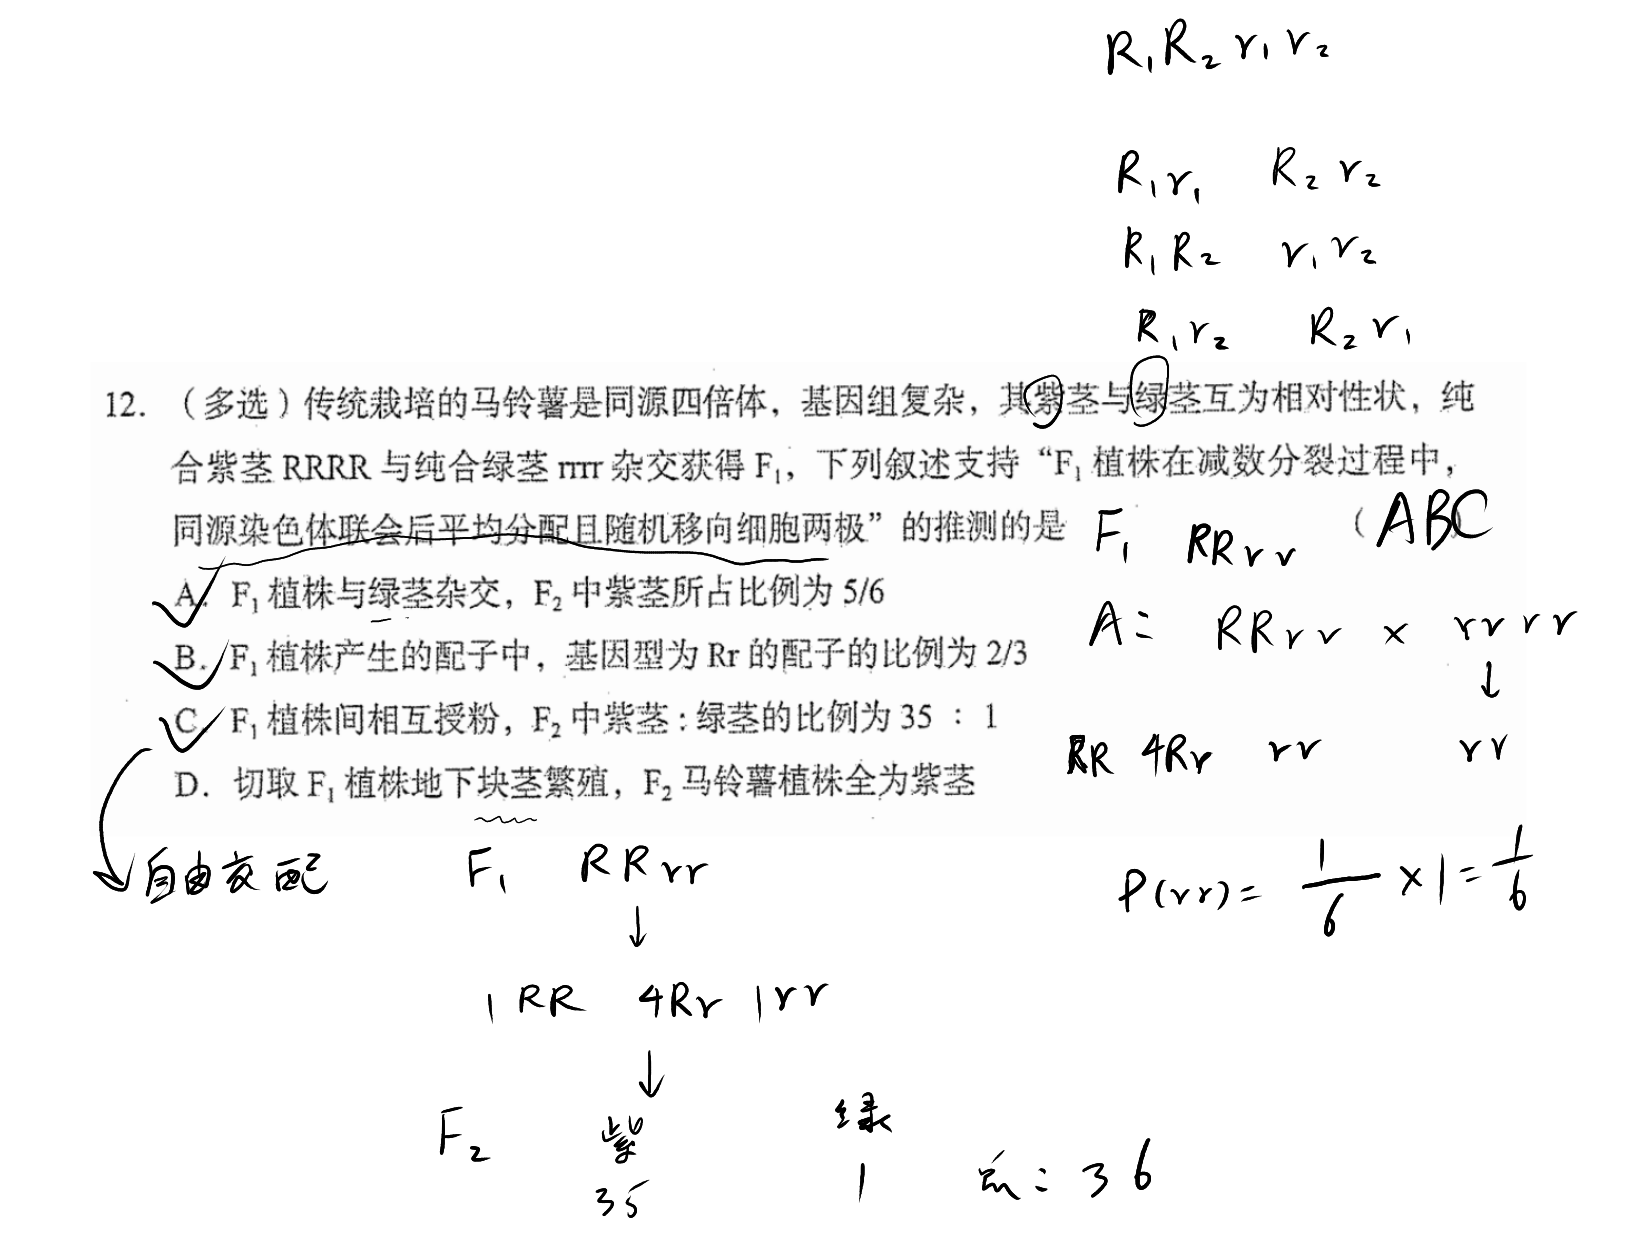 R₁R₂r₁r₂
R₁r₁ R₂r₂
R₁R₂ r₁r₂
R₁r₂ R₂r₁
12.（多选）传统栽培的马铃薯是同源四倍体，基因组复杂，其紫茎与绿茎互为相对性状，纯
合紫茎 RRRR 与纯合绿茎 rrrr 杂交获得 F₁，下列叙述支持“F₁ 植株在减数分裂过程中，
同源染色体联会后平均分配且随机移向细胞两极”的推测的是 （ABC）
F₁ RRrr
A. F₁ 植株与绿茎杂交，F₂ 中紫茎所占比例为 5/6
A: RRrr × rrrr
↓
B. F₁ 植株产生的配子中，基因型为 Rr 的配子的比例为 2/3
C. F₁ 植株间相互授粉，F₂ 中紫茎：绿茎的比例为 35 : 1
RR 4Rr rr rr
D. 切取 F₁ 植株地下块茎繁殖，F₂ 马铃薯植株全为紫茎
自由交配 F₁ RRrr
P(rr)= 1/6 ×1= 1/6
↓
1RR 4Rr 1rr
↓
F₂ 紫 绿
35 1 总: 36